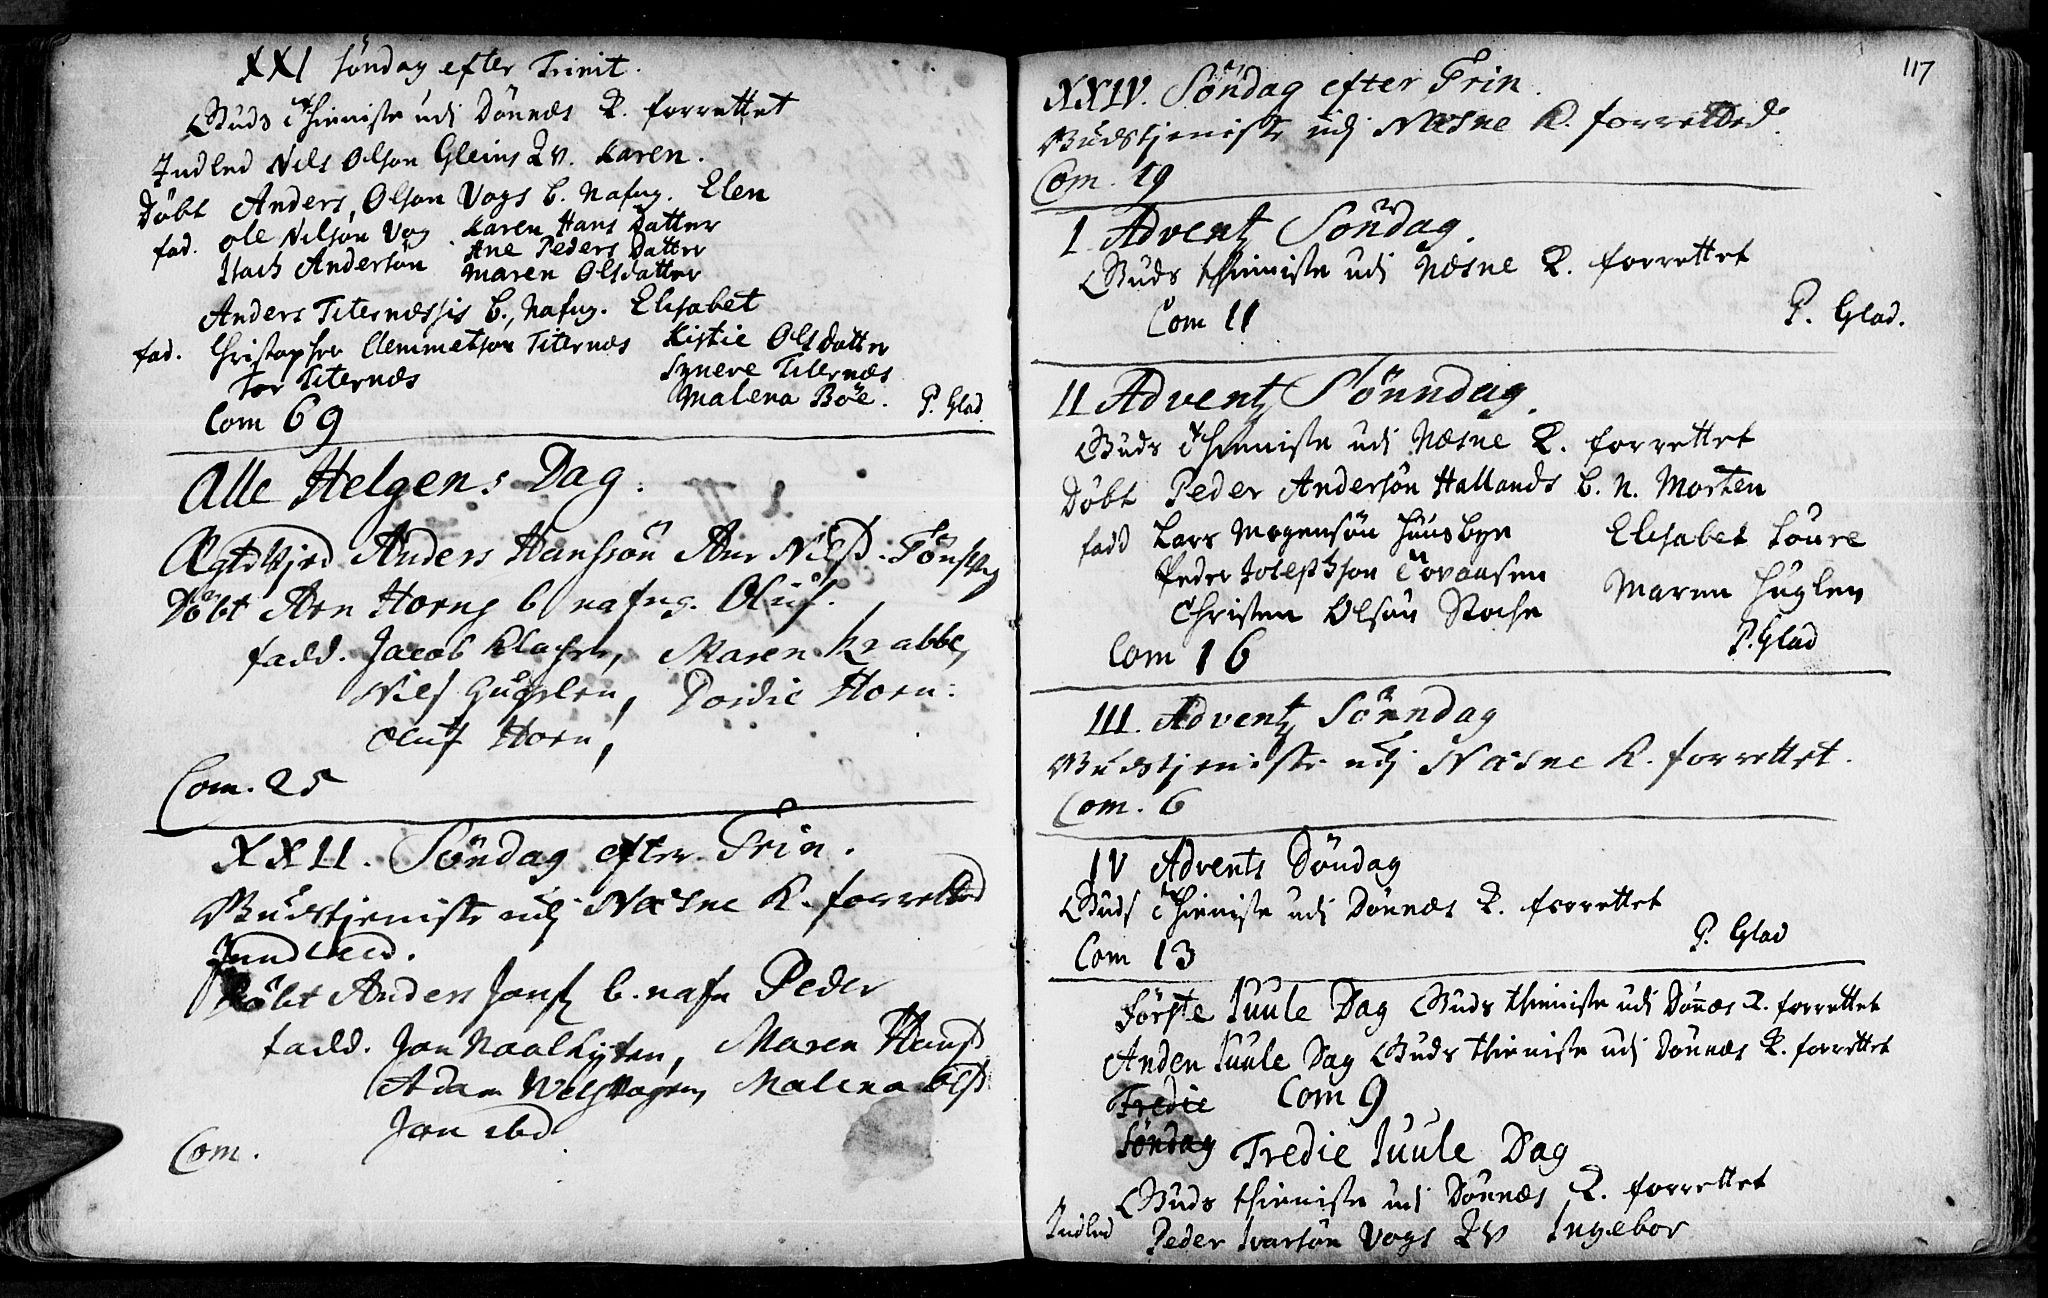 XXI söndag efter Trinit.
Guds Thieniste udi Dönnæs K. forrettet
Indled Nils Olson Gleins Qv. Karen.
Döbt Anders Olson Vogs b. Nafng. Elen
fad. Ole Nilsön Vog Karen Hans Datter
Isach Andersön Ane Peders Datter
Maren Olsdatter
Anders Titernæssis b. Nafng. Elisabet
fad. Christopher Clemmetson Titernæs Kistie Olsdatter
Tor Titernæs Synere Titernæs
Malena Böe.
Com 69 P. Glad.
Alle Helgens Dag.
Ægtevied Anders Hanssön Ane Nilsd.
Döbt Arn Horns b nafng. Oluf.
fadd. Jacob Maren Krabbe,
Nils Huglen, Dordie Horn:
Oluf Horn,
Com. 25
XXII. Söndag efter Trin.
Gudstjeniste udj Næsne K. forretted
Jndled.
Döbt Anders Jons b. nafn Peder
fadd. Jon Maren Hansd
Adam Malena Olsd
Jon ibd
Com.
117
XXIV. Söndag efter Trin.
Gudstjeniste udj Næsne K. forretted.
Com. 19
I Advents Söndag.
Guds thieniste udi Næsne K. forrettet
Com 11 P. Glad.
II Advents Sönndag.
Guds Thieniste udi Næsne K. forrettet
Döbt Peder Andersön Hallands b. N. Morten
fadd Lars Mogensön Huusbye Elisabet Loure
Peder Josephson Maren Huglen
Christen Olsön
Com 16 P. Glad
III. Advents Sönndag
Gudstjeniste udj Næsne K. forrettet.
Com. 6
IV Advents Söndag
Guds Thieniste udi Dönnæs K. forrettet
Com 13 P. Glad
Förste Juule Dag Guds thieniste udi Dönnæs K. forrettet
Anden Juule Dag Guds thieniste udi Dönnæs K. forrettet
Tredie Com 9
Söndag Tredie Juule Dag
Guds thieniste udi Dönnæs K. forrettet
Indled Peder Ivarsön Vogs Qv Ingebor